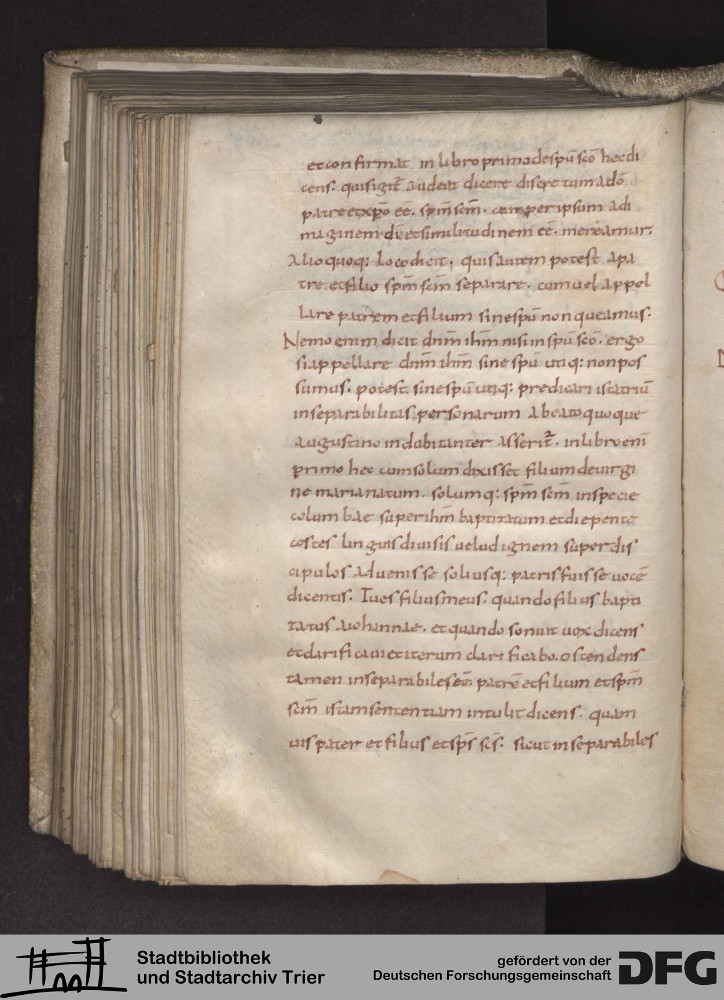 et confirmat in libro primo de spū scō hec di
cens. quis igit̄ audeat dicere discretum a dō
patre et xp̄o ee. sp̄m scm̄. cum per ipsum ad i
maginem dī et similitudinem ee. mereamur.
Alio quoq: loco dicit. quis autem potest a pa
tre. et filio sp̄m scm̄ separare. cum uel appel
lare patrem et filium sine spū non queamus.
Nemo enim dicit dnm̄ ihm̄ nisi in spū scō. ergo
si appellare dnm̄ ihm̄ sine spū utiq: non pos
sumus. potest sine spū utiq: predicari ista triū
inseparabilitas personarum a beato quoque
augustino indubitanter asserit̄. in libro eni
primo hec cum solum dixisset filium de uirgi
ne maria natum. solumq: sp̄m scm̄ in specie
columbae super ihm̄ baptizatum et die pente
costes linguis diuisis uelud ignem super dis
cipulos aduenisse soliusq: patris fuisse uocē
dicentis. Tu es filius meus. quando filius bapti
zatus a iohannae. et quando sonuit uox dicens
et clarificaui et iterum clarificabo. ostendens
tamen inseparabiles eē. patrē et filium et sp̄m
scm̄ istam sententiam intulit dicens. quam
uis pater et filius et sp̄s sc̄s. sicut inseparabiles
Stadtbibliothek
und Stadtarchiv Trier
gefördert von der
Deutschen Forschungsgemeinschaft
DFG